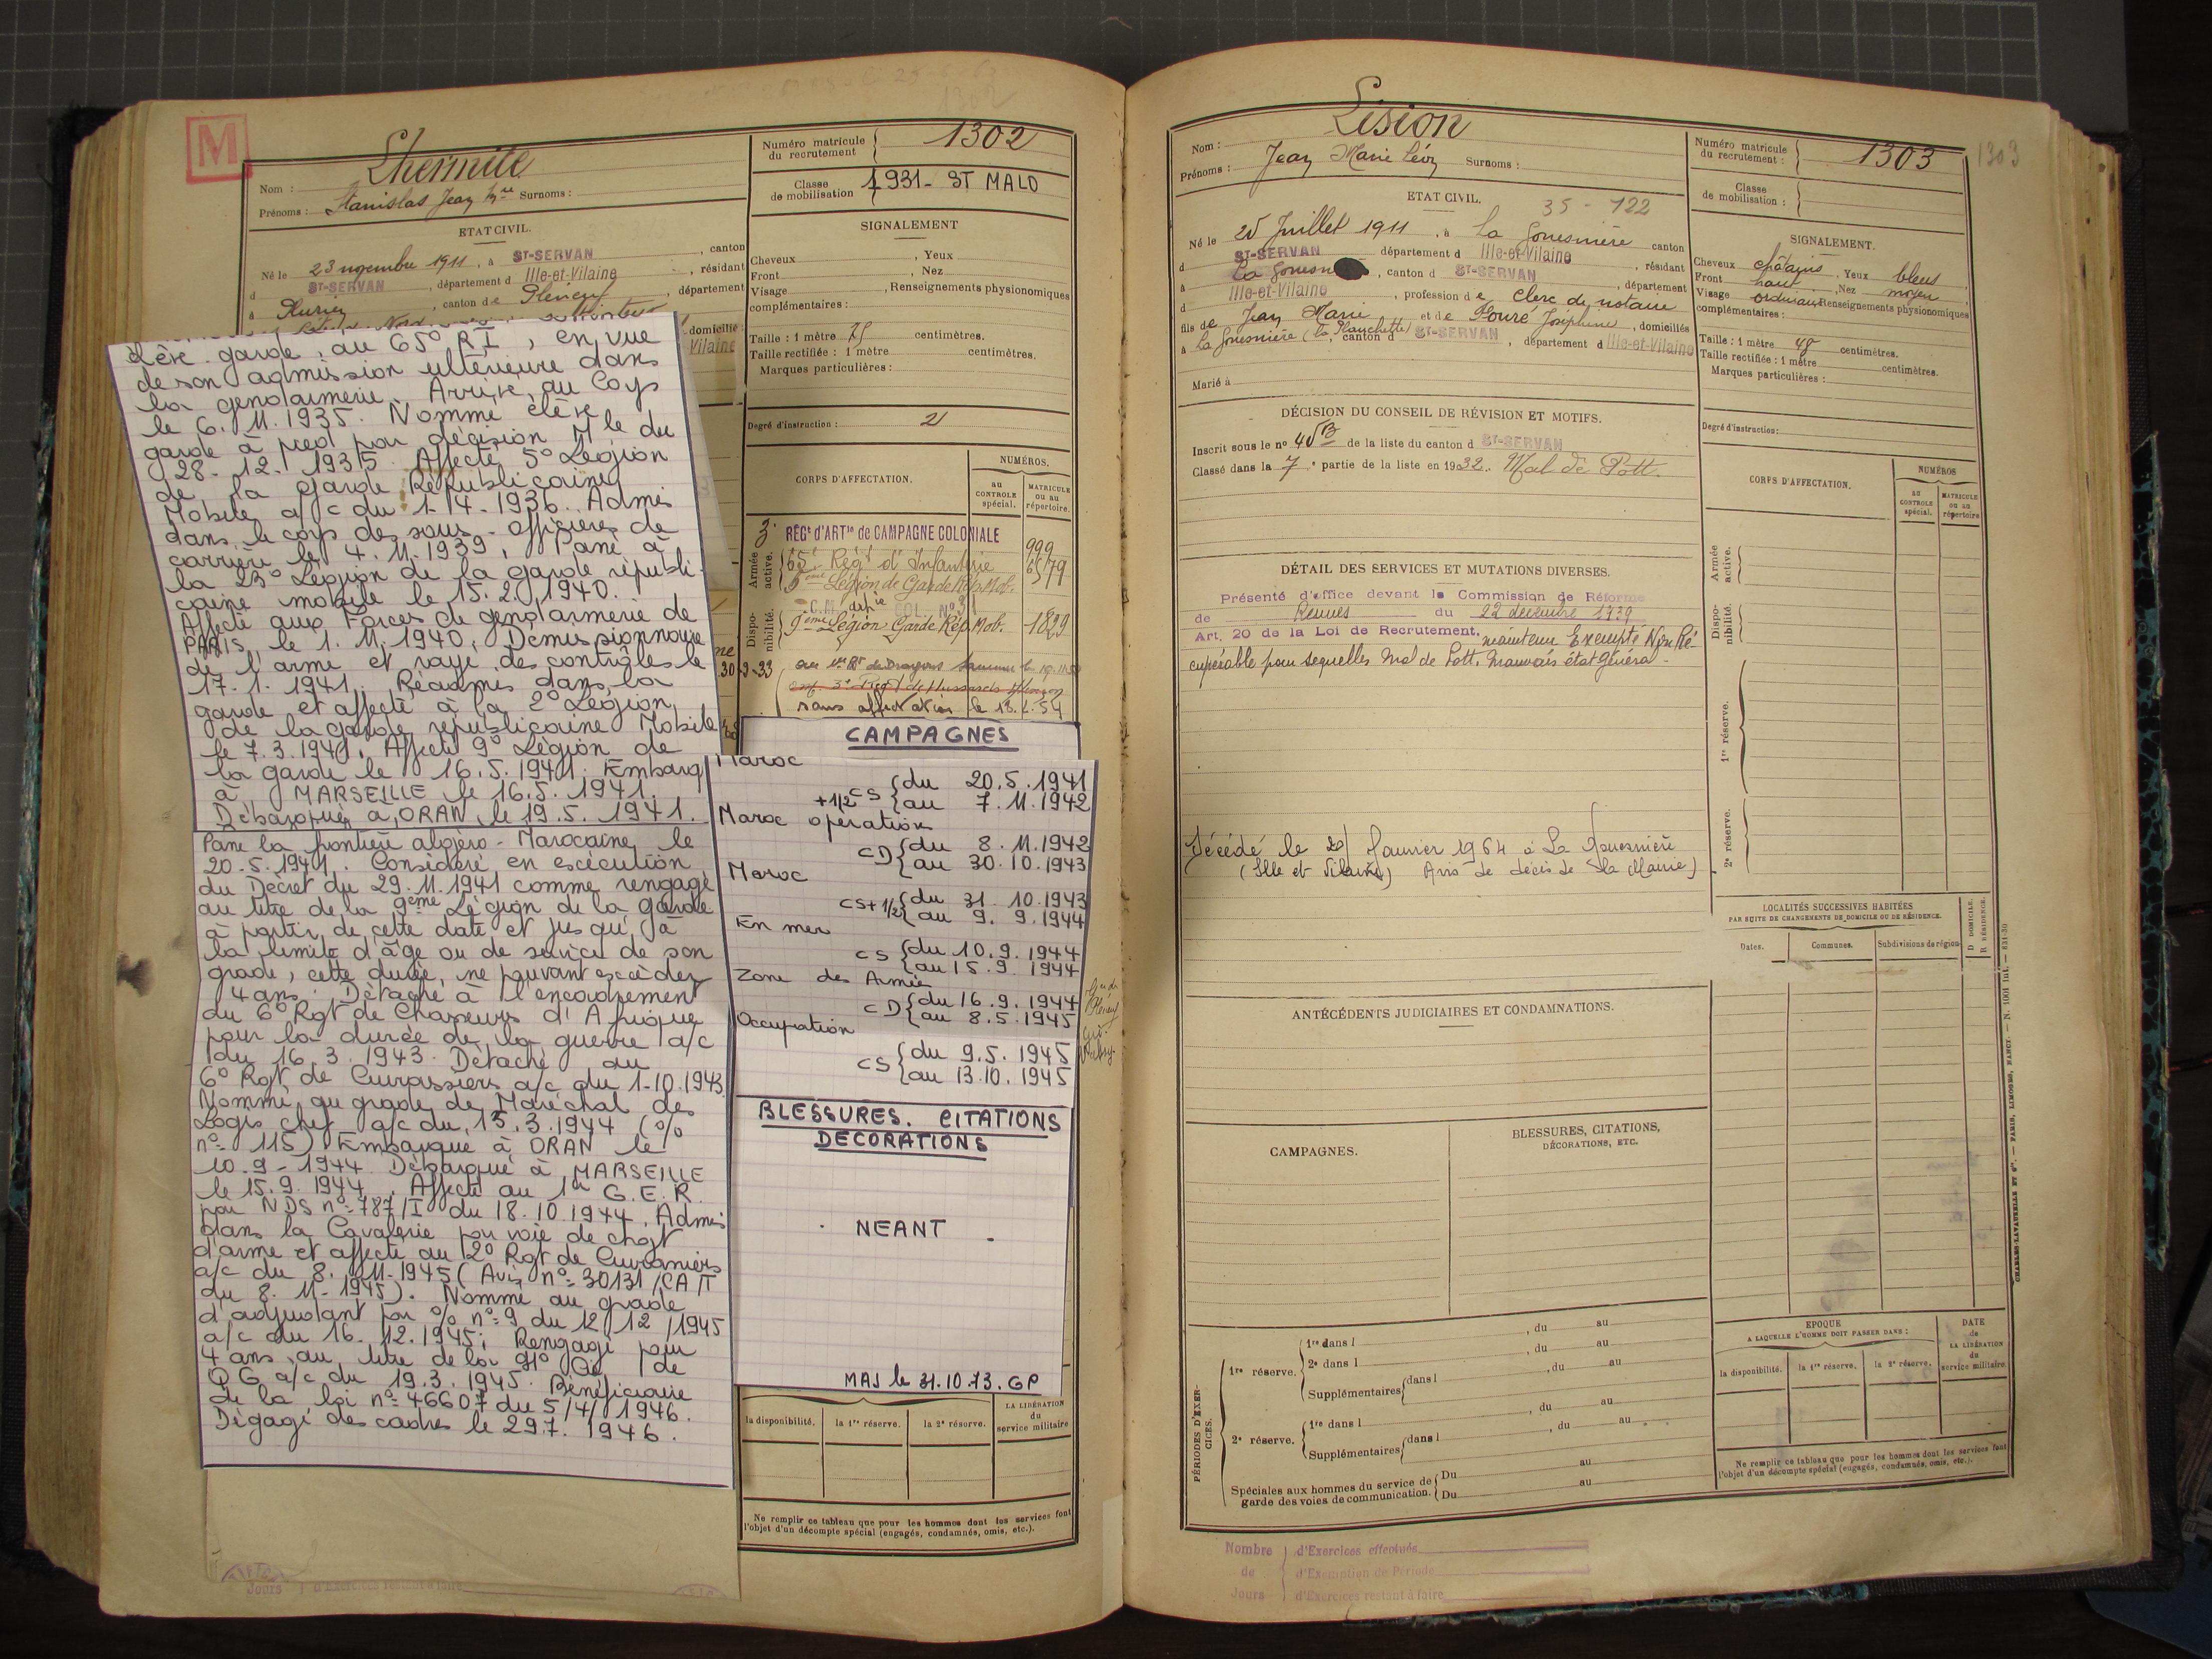 M
Lhermite
Nom :
Prénoms : Stanislas Jean Surnoms :
Numéro matricule du recrutement 1302
Classe de mobilisation 1931 - ST MALO
ETAT CIVIL.
Né le 23 novembre 1911, à ST-SERVAN, canton
d ST-SERVAN, département d Ille-et-Vilaine, résidant
à Plurien, canton de Pléneuf, département
domicilié
Vilaine
SIGNALEMENT
Cheveux , Yeux
Front , Nez
Visage , Renseignements physionomiques
complémentaires :
Taille : 1 mètre 75 centimètres.
Taille rectifiée : 1 mètre centimètres.
Marques particulières :
Degré d'instruction : 2
CORPS D'AFFECTATION.
NUMÉROS.
au CONTROLE spécial.
MATRICULE ou au répertoire.
Armée active.
3e REGt d'ARTie de CAMPAGNE COLONIALE 999
65e Régt d'Infanterie
5eme Légion de Garde Rép. Mob.
Dispo-nibilité.
9eme Légion Garde Rép. Mob. 1829
sans affectation le
30-9-33
élève garde, au 65° RI, en vue
de son admission ultérieure dans
la gendarmerie. Arrivé au Corps
le 6.11.1935. Nommé élève
garde à pied par décision Mle du
28-12-1935. Affecté 5° Légion
de la garde Républicaine
Mobile a/c du 1-14-1936. Admis
dans le corps des sous-officiers de
carrière le 4.11.1939, Passé à
la 23° Légion de la garde républi-
caine mobile le 15.2.1940.
Affecté aux Forces de gendarmerie de
PARIS, le 1.11.1940, Démissionnaire
de l'arme et rayé des contrôles le
17.1.1941. Réadmis dans la
garde et affecté à la 2° Légion
de la garde républicaine Mobile
le 7.3.1941. Affecté 9° Légion de
la garde le 16.5.1941. Embarq
à MARSEILLE le 16.5.1941.
Débarqué à ORAN le 19.5.1941.
Passe la frontière algéro-Marocaine le
20.5.1941. Considéré en exécution
du Décret du 29.11.1941 comme rengagé
au titre de la 9ème Légion de la garde
à partir de cette date et jusqu'à
la limite d'âge ou de service de son
grade, cette durée, ne pouvant excéder
4 ans. Détaché à l'encadrement
du 6° Rgt de Chasseurs d'Afrique
pour la durée de la guerre a/c
du 16.3.1943. Détaché au
6° Rgt de Cuirassiers a/c du 1-10.1943
Nommé au grade de Maréchal des
Logis chef a/c du 15.3.1944 (%
n° 115) Embarqué à ORAN le
10.9-1944 Débarqué à MARSEILLE
le 15.9.1944. Affecté au 1er G.E.R.
par NDS n° 787/I du 18.10.1944. Admis
dans la Cavalerie par voie de chgt
d'arme et affecté au 2° Rgt de Cuirassiers
a/c du 8.11-1945 (Avis n° 30131/CAT
du 8.11-1945). Nommé au grade
d'adjudant par % n° 9 du 12/12/1945
a/c du 16.12.1945; Rengagé pour
4 ans, au titre de la 91° Cie de
QG a/c du 19.3.1945. Bénéficiaire
de la loi n° 46607 du 5/4/1946.
Dégagé des cadres le 29.7.1946.
CAMPAGNES
Maroc
CS+1/2 {du 20.5.1941
au 7.11.1942
Maroc opération
CD {du 8.11.1942
au 30.10.1943
Maroc
CS+1/2 {du 31.10.1943
au 9.9.1944
En mer
CS {du 10.9.1944
au 15.9.1944
Zone des Armées
CD {du 16.9.1944
au 8.5.1945
Occupation
CS {du 9.5.1945
au 13.10.1945
BLESSURES. CITATIONS
DECORATIONS
NEANT
MAJ le 31.10.73. GP
la disponibilité.
la 1re réserve.
la 2e réserve.
LA LIBÉRATION du service militaire
Ne remplir ce tableau que pour les hommes dont les services font
l'objet d'un décompte spécial (engagés, condamnés, omis, etc.).
Jours d'Exercices restant à faire
Lésion
Nom :
Prénoms : Jean Marie Léon Surnoms :
Numéro matricule du recrutement : 1303
1303
Classe de mobilisation :
ETAT CIVIL. 35 - 122
Né le 25 Juillet 1911, à La Gouesnière canton
d ST-SERVAN département d Ille-et-Vilaine, résidant
à La Gouesn , canton d ST-SERVAN, département
d Ille-et-Vilaine, profession de clerc de notaire
fils de Jean Marie et de Pouré Joséphine, domiciliés
à La Gouesnière (La Planchette), canton d ST-SERVAN, département d Ille-et-Vilaine
Marié à
SIGNALEMENT.
Cheveux châtains, Yeux bleus
Front haut, Nez moyen
Visage ordinaire Renseignements physionomiques
complémentaires :
Taille : 1 mètre 48 centimètres.
Taille rectifiée : 1 mètre centimètres.
Marques particulières :
Degré d'instruction :
DÉCISION DU CONSEIL DE RÉVISION ET MOTIFS.
Inscrit sous le n° 45B de la liste du canton d ST-SERVAN
Classé dans la 7e partie de la liste en 1932. Mal de Pott.
DÉTAIL DES SERVICES ET MUTATIONS DIVERSES.
Présenté d'office devant la Commission de Réforme
de Rennes du 22 décembre 1939
Art. 20 de la Loi de Recrutement, maintenu Exempté Non Ré-
cupérable pour séquelles Mal de Pott. Mauvais état général.
Décédé le 20 Janvier 1964 à La Gouesnière
(Ille et Vilaine) Avis de décès de la Mairie)
CORPS D'AFFECTATION.
NUMÉROS
au CONTROLE spécial.
MATRICULE ou au répertoire
Armée active.
Dispo-nibilité.
1re réserve.
2e réserve.
LOCALITÉS SUCCESSIVES HABITÉES
PAR SUITE DE CHANGEMENTS DE DOMICILE OU DE RÉSIDENCE.
Dates.
Communes.
Subdivisions de région
D DOMICILE.
R RÉSIDENCE.
ANTÉCÉDENTS JUDICIAIRES ET CONDAMNATIONS.
CAMPAGNES.
BLESSURES, CITATIONS,
DÉCORATIONS, ETC.
PÉRIODES D'EXER-CICES.
1re réserve.
1re dans l , du au
2e dans l , du au
Supplémentaires dans l , du au
2e réserve.
1re dans l , du au
Supplémentaires dans l , du au
Spéciales aux hommes du service de
garde des voies de communication.
Du au
Du au
EPOQUE
A LAQUELLE L'HOMME DOIT PASSER DANS :
la disponibilité.
la 1re réserve.
la 2e réserve.
DATE de LA LIBÉRATION du service militaire.
Ne remplir ce tableau que pour les hommes dont les services font
l'objet d'un décompte spécial (engagés, condamnés, omis, etc.).
CHARLES-LAVAUZELLE ET Cie. — PARIS, LIMOGES, NANCY. — N. 1001 Int. — 831-30
Nombre de Jours
d'Exercices effectués
d'Exemption de Période
d'Exercices restant à faire